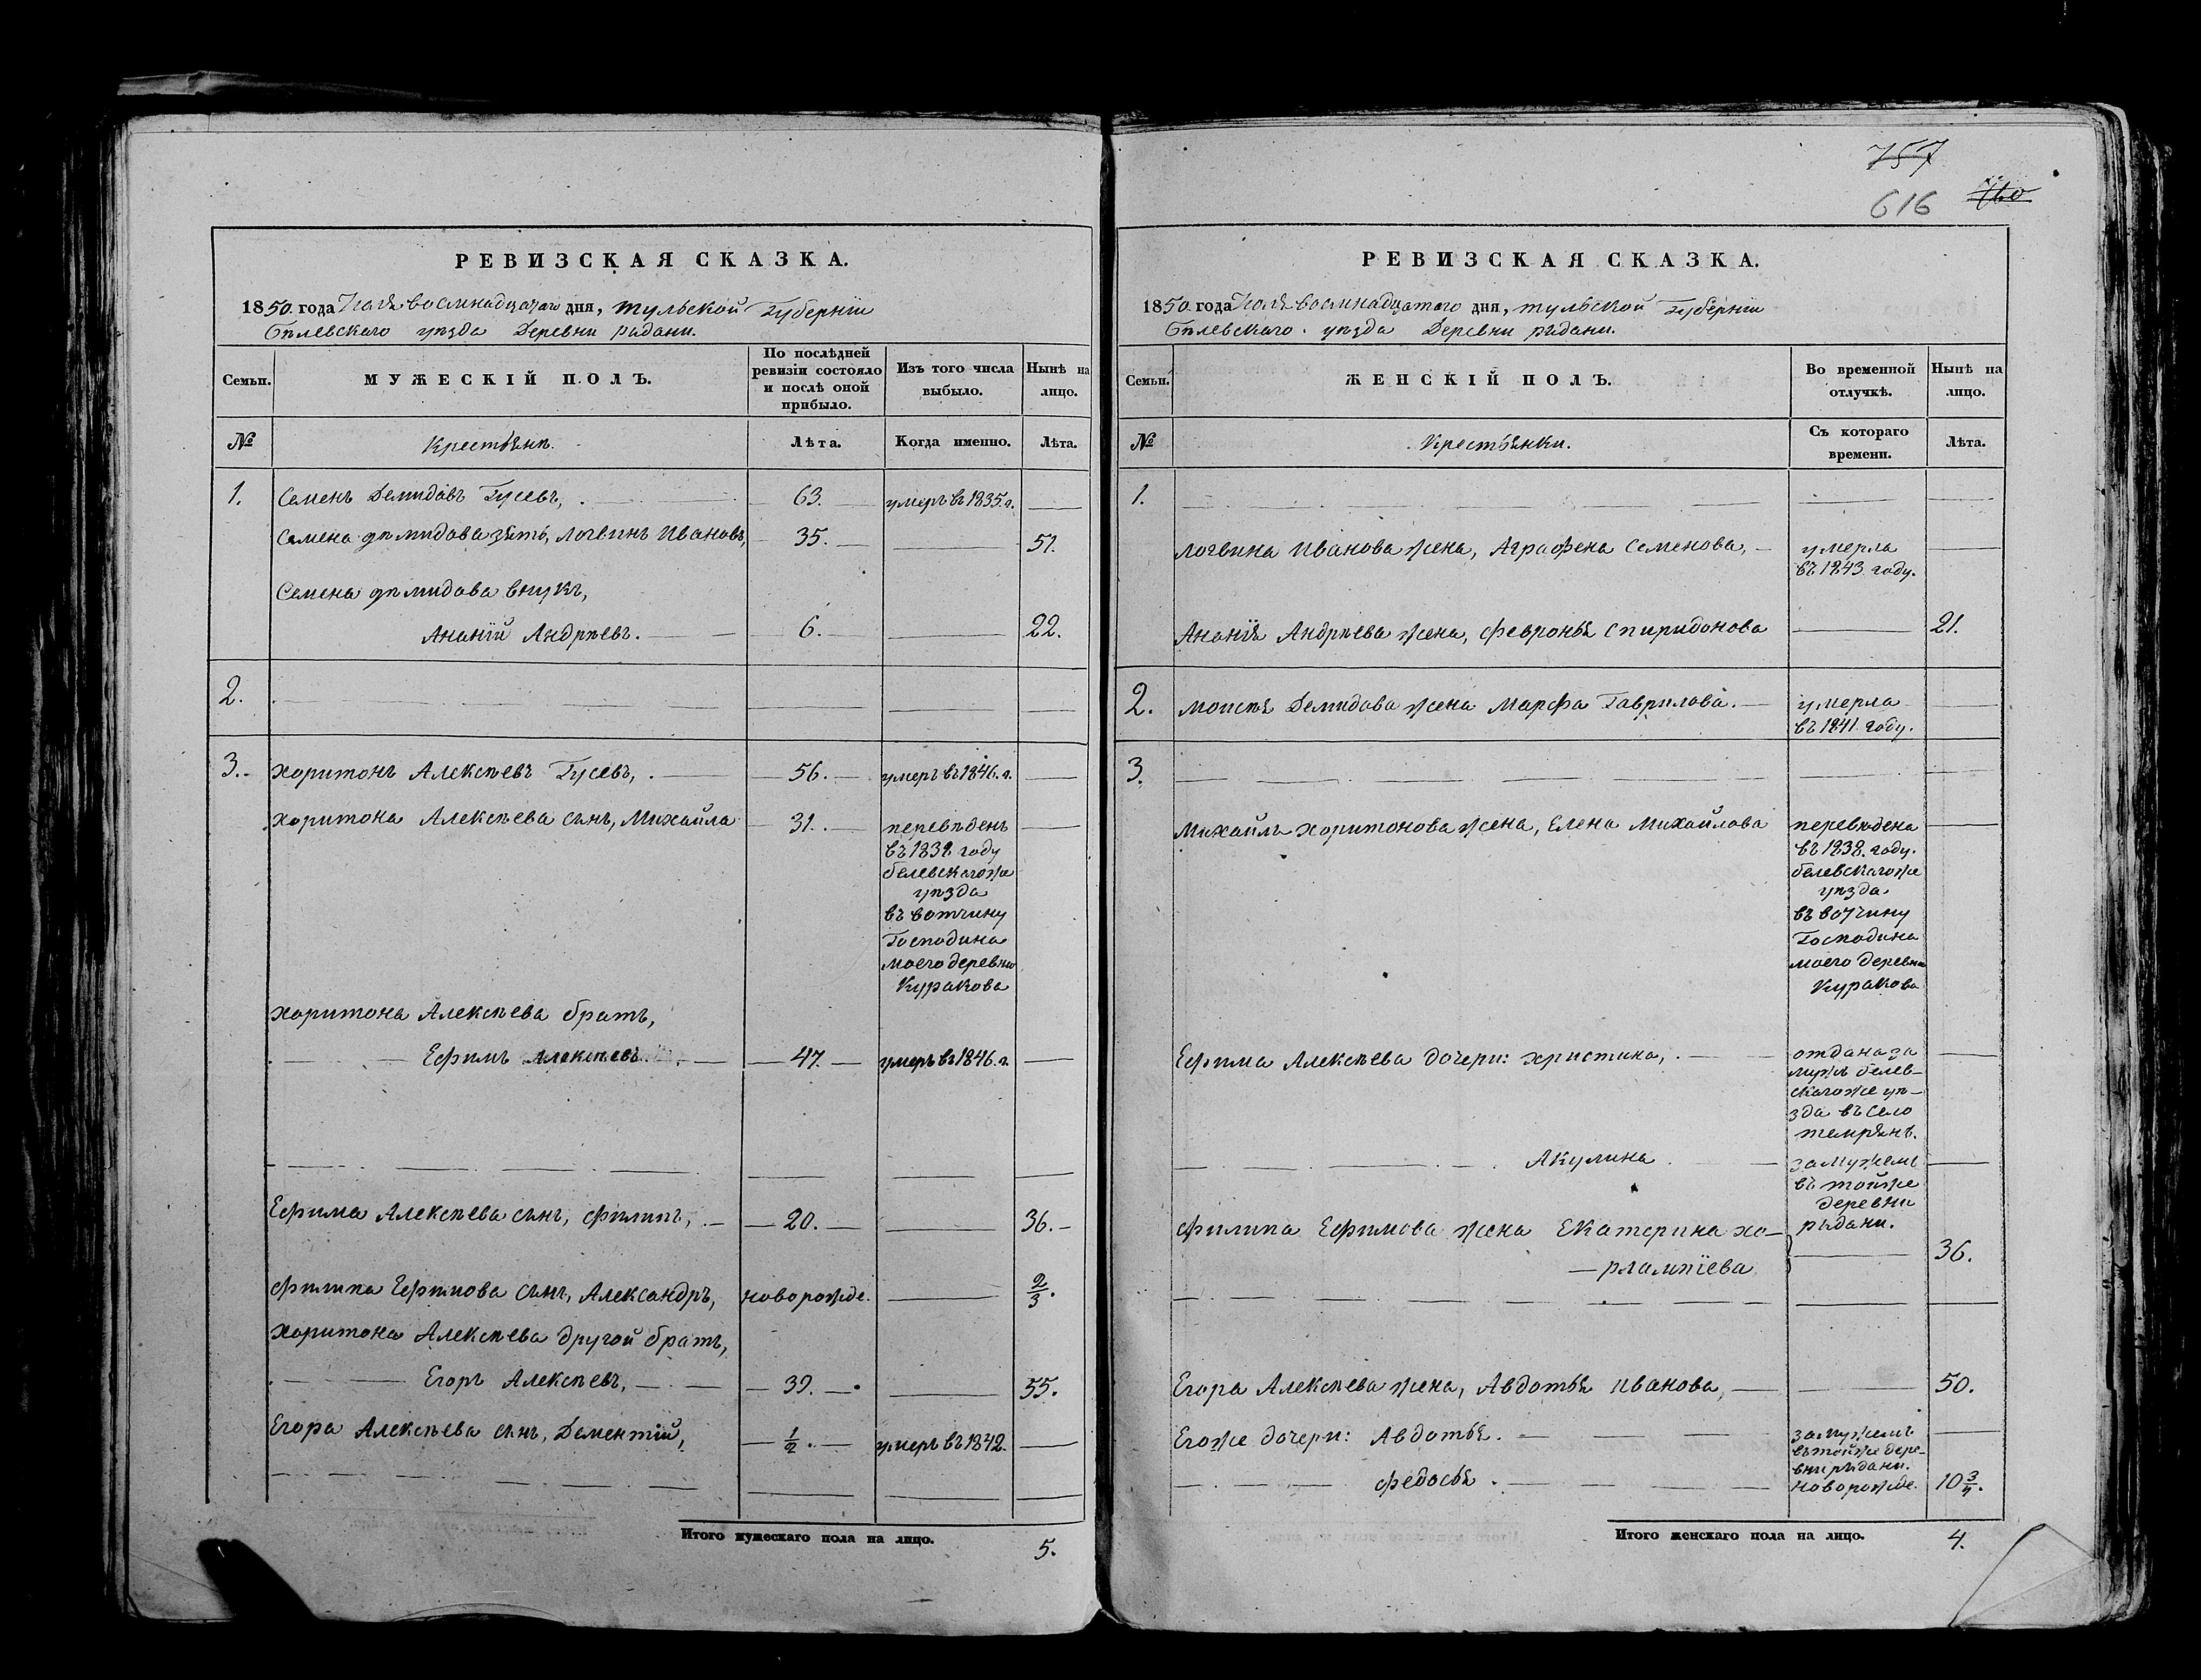 757
616
РЕВИЗСКАЯ СКАЗКА.
1850. года Іюля восмнадцатаго дня, тульской Губерніи
Бѣлевскаго уѣзда Деревни рядани.
Семьи.
МУЖЕСКІЙ ПОЛЪ.
По послѣдней ревизіи состояло и послѣ оной прибыло.
Изъ того числа выбыло.
Нынѣ на лицо.
№
Крестьянѣ.
Лѣта.
Когда именно.
Лѣта.
1. Семенъ Демидовъ Гусевъ, 63. умеръ въ 1835. г.
Семена дѣмидова зять, Логвинъ Ивановъ, 35. 51.
Семена дѣмидова внукъ,
Ананій Андрѣевъ. 6. 22.
2.
3. Харитонъ Алексѣевъ Гусевъ, 56. умеръ въ 1846. г.
Харитона Алексѣева сынъ, Михайла 31. перевѣденъ
въ 1838 году
белевскагоже
уѣзда
въ вотчину
Господина
моего деревню
Куракова
Харитона Алексѣева братъ,
Ефимъ Алексѣевъ. 47. умеръ въ 1846. г.
Ефима Алексѣева сынъ, Филипъ, 20. 36.
Филипа Ефимова сынъ, Александръ, новорожде. 2/3.
Харитона Алексѣева другой братъ,
Егоръ Алексѣевъ, 39. 55.
Егора Алексѣева сынъ, Дементій, 1/2. умеръ въ 1842.
Итого мужескаго пола на лицо. 5.
РЕВИЗСКАЯ СКАЗКА.
1850. года Іюля восмнадцатаго дня, тульской Губерніи
Бѣлевскаго уѣзда Деревни рядани.
Семьи.
ЖЕНСКІЙ ПОЛЪ.
Во временной отлучкѣ.
Нынѣ на лицо.
№
Крестьянки.
Съ котораго времени.
Лѣта.
1.
Логвина Иванова жена, Аграфена Семенова, умерла
въ 1843. году.
Ананія Андрѣева жена, Февронья Спиридонова 21.
2. Моисѣя Демидова жена Марфа Гаврилова. умерла
въ 1841. году.
3.
Михайлы Харитонова жена, Елена Михайлова перевѣдена
въ 1838. году.
белевскагоже
уѣзда
въ вотчину
Господина
моего деревню
Куракова
Ефима Алексѣева дочери: Христина, отдана за
мужъ белев-
скагоже уѣ-
зда въ село
темрянь.
Акулина замужемъ
въ тойже
деревни
рядани.
Филипа Ефимова жена Екатерина Ха-
рлампіева 36.
Егора Алексѣева жена, Авдотья Иванова, 50.
Егоже дочери: Авдотья. замужемъ
въ тойже дере-
вни рядани.
Федосья. новорожде. 10 3/4.
Итого женскаго пола на лицо. 4.